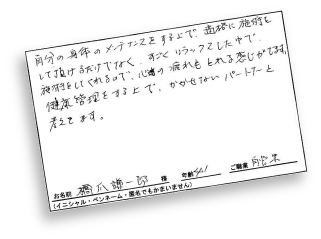 自分の身体のメンテナンスをする上で、直接に施術を
して頂けるだけでなく、すごくリラックスした中で、
施術をしてくれるので、心身の疲れもとれる感じがします。
健康管理をする上で、かかせないパートナーと
考えてます。
お名前 橋爪謙一郎 様 年齢 41 ご職業 自営業
(イニシャル・ペンネーム・匿名でもかまいません)